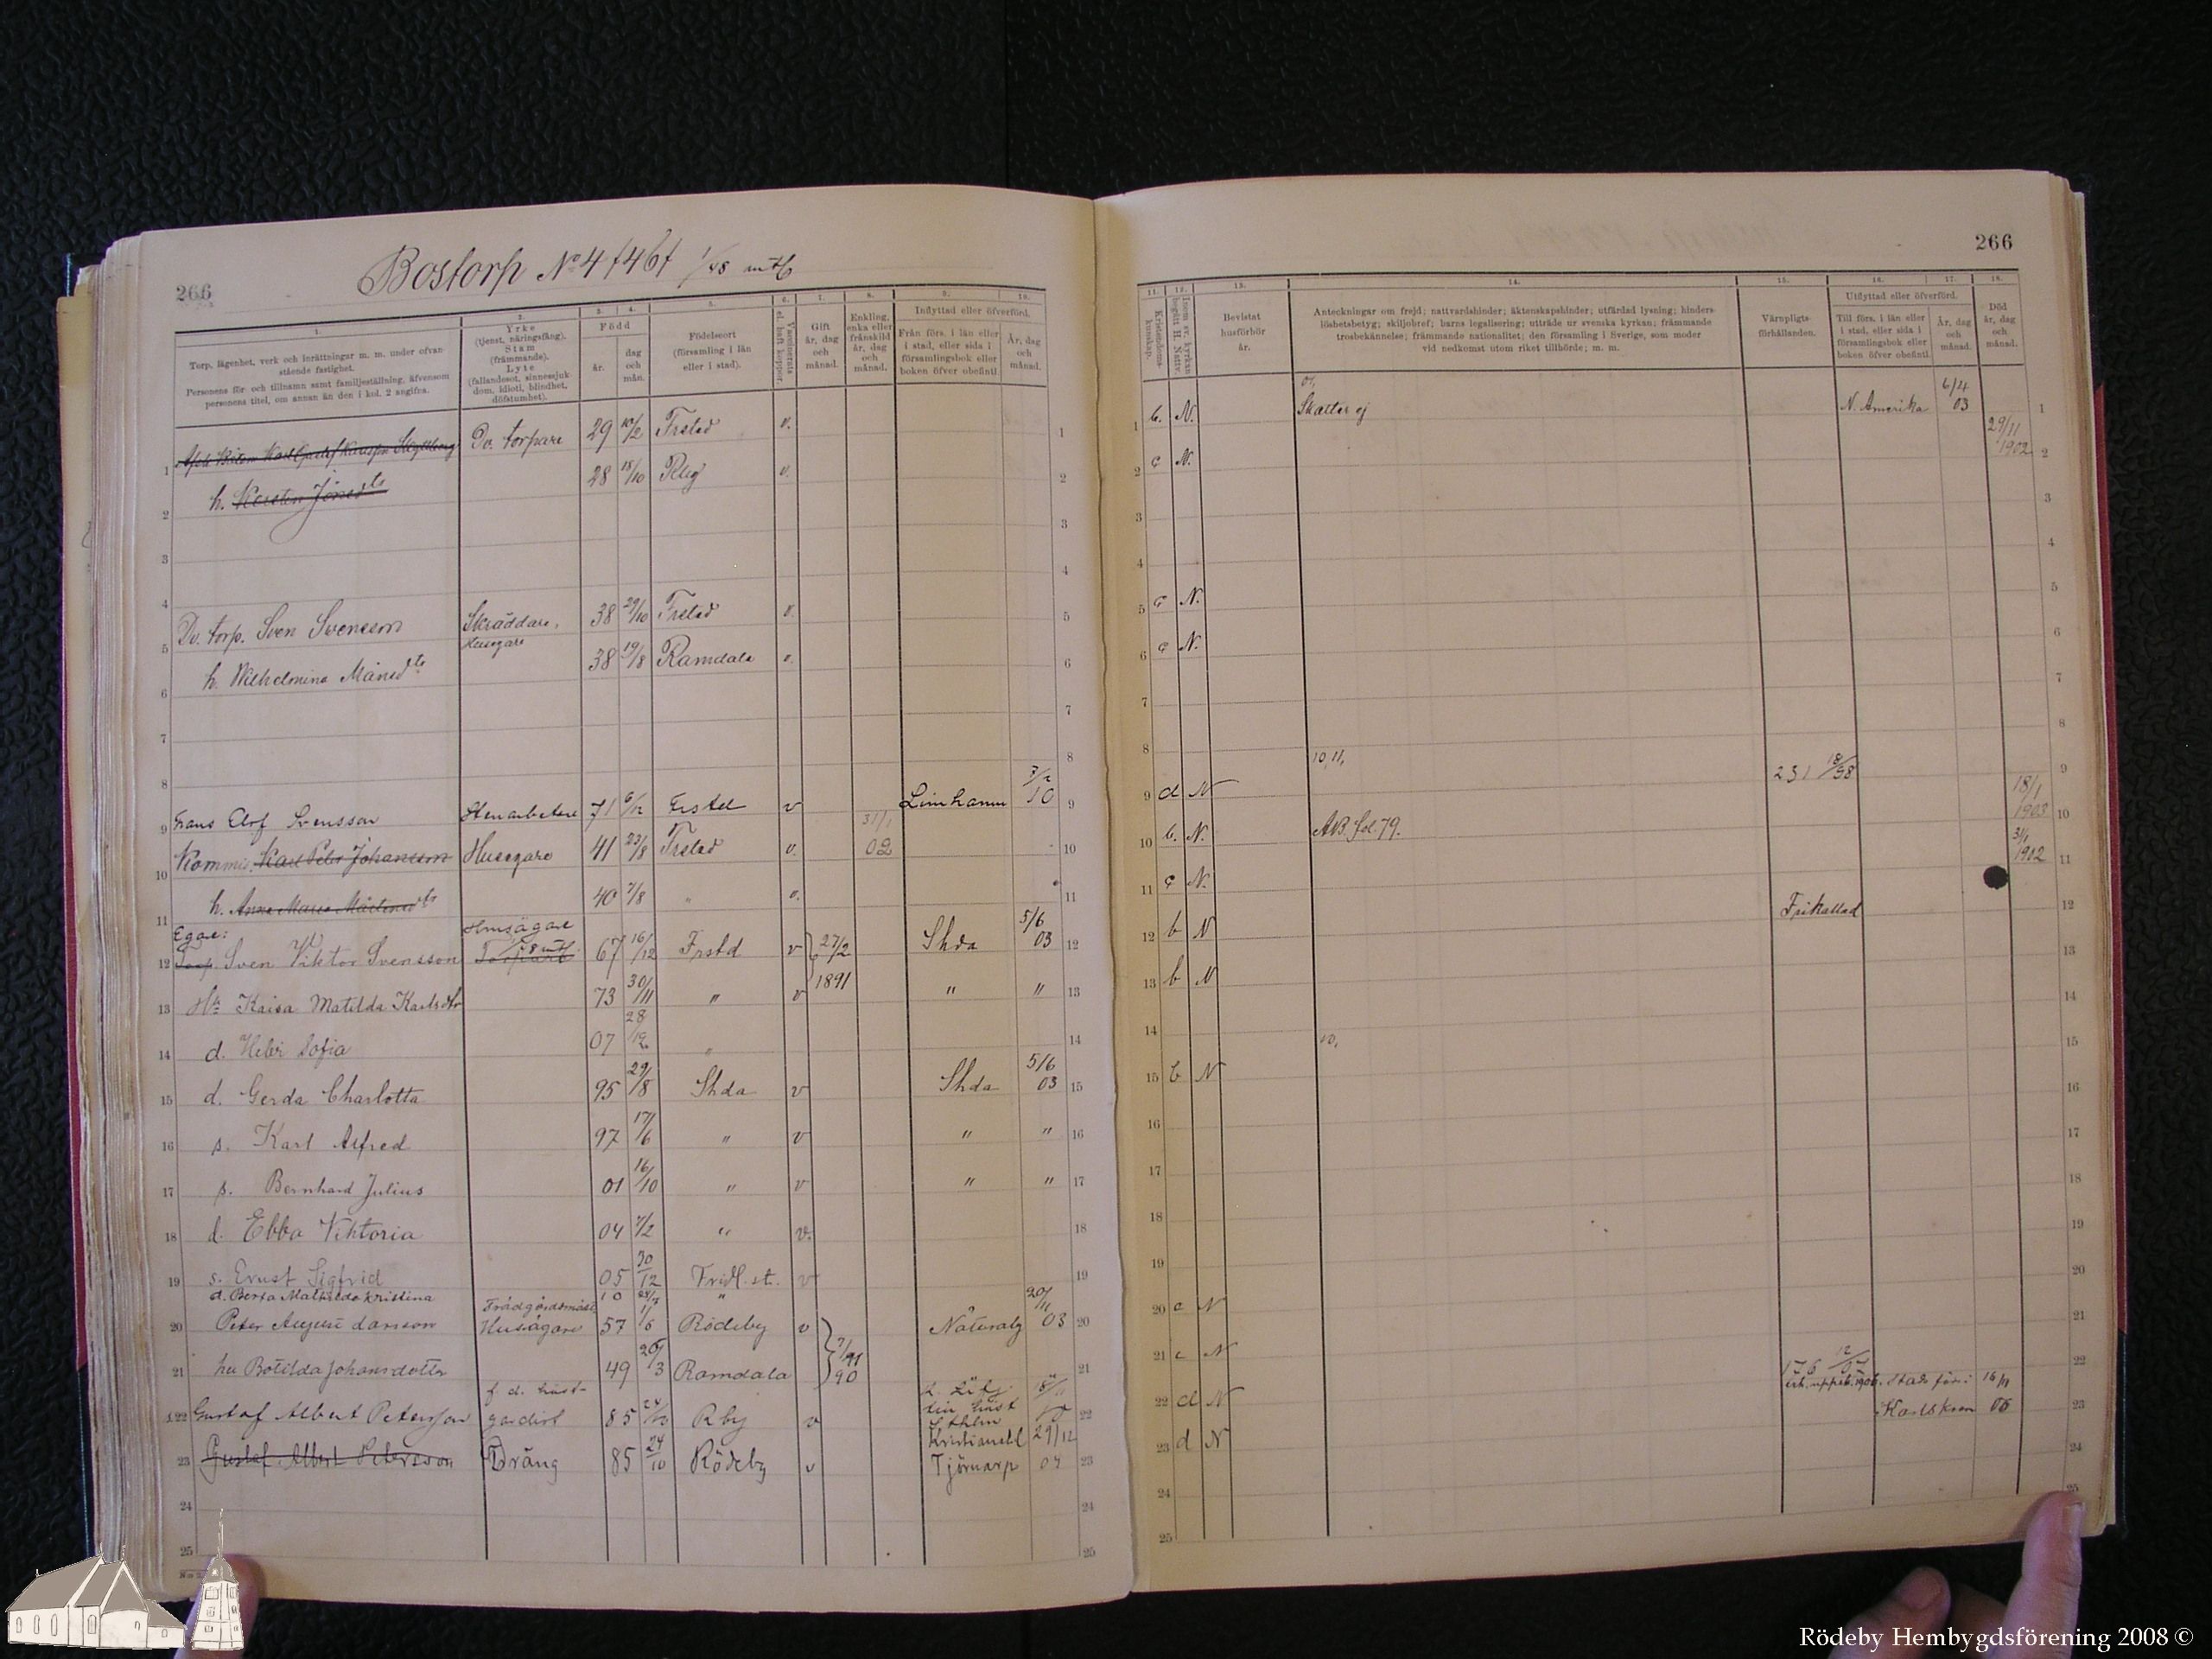 266
Bostorp No 4 /46/ 1/48 mtl
1.
Torp, lägenhet, verk och inrättningar m. m. under ofvan-
stående fastighet.
Personens för- och tillnamn samt familjeställning, äfvensom
personens titel, om annan än den i kol. 2 angifna.
2.
Yrke
(tjenst, näringsfång).
Stam
(främmande).
Lyte
(fallandesot, sinnessjuk-
dom, idioti, blindhet,
döfstumhet).
3. 4.
Född
år.
dag
och
mån.
5.
Födelseort
(församling i län
eller i stad).
6.
Vaccinerats
el. haft koppor.
7.
Gift
år, dag
och
månad.
8.
Enkling,
enka eller
frånskild
år, dag
och
månad.
9. 10.
Inflyttad eller öfverförd.
Från förs. i län eller
i stad, eller sida i
församlingsbok eller
boken öfver obefintl.
År, dag
och
månad.
1 Dv. torpare 29 10/2 Frstad v. 1
2 h. Kersten Jönsdtr 28 18/10 Rby v. 2
3 3
4 4
5 Dv. torp. Sven Svensson Skräddare, Husegare 38 29/10 Frstad v. 5
6 h. Wilhelmina Månsdtr 38 19/8 Ramdala v. 6
7 7
8 8
9 Frans Olof Svensson Stenarbetare 71 6/12 Frstad v Limhamn 7/2 10 9
10 Kommin. Karl Peter Johansson Husegare 41 23/8 Frstad v. 31/1 02 10
11 h. Anna Maria Mårtensdtr 40 7/8 " v. 11
Egare: Husägare
12 Torp. Sven Viktor Svensson Torpare 67 16/12 Frstd v 27/2 Shda 5/6 03 12
13 Hu Kaisa Matilda Karlsdtr 73 30/11 " v 1891 " " 13
14 d. Sofia 07 28/12 " 14
15 d. Gerda Charlotta 95 29/8 Shda v Shda 5/6 03 15
16 s. Karl Alfred 97 17/6 " v " " 16
17 s. Bernhard Julius 01 16/10 " v " " 17
18 d. Ebba Viktoria 04 7/2 " v. 18
19 s. Ernst Sigfrid 05 30/12 Fridl.st. v 19
d. Berta Matilda Kristina 10 "
Trädgårdsmäst.
20 Peter August Larsson Husägare 57 1/6 Rödeby v Nättraby 20/11 03 20
21 hu Botilda Johansdotter 49 26/3 Ramdala 90 21
f. d. häst-
22 Gustaf Albert Petersson gardist 85 24/10 Rby v Sthlm 22
23 Gustaf Albert Petersson Dräng 85 24/10 Rödeby v Kristianstd Tjörnarp 29/12 04 23
24 24
25 25
266
11.
Kristendoms-
kunskap.
12.
Inom sv. kyrkan
begått H. Nattv.
13.
Bevistat
husförhör
år.
14.
Anteckningar om frejd; nattvardshinder; äktenskapshinder; utfärdad lysning; hinders-
löshetsbetyg; skiljobref; barns legalisering; utträde ur svenska kyrkan; främmande
trosbekännelse; främmande nationalitet; den församling i Sverige, som moder
vid nedkomst utom riket tillhörde; m. m.
15.
Värnpligts-
förhållanden.
16. 17.
Utflyttad eller öfverförd.
Till förs. i län eller
i stad, eller sida i
församlingsbok eller
boken öfver obefintl.
År, dag
och
månad.
18.
Död
år, dag
och
månad.
1 b. N. Skatter ej N. Amerika 6/4 03 1
2 c N. 29/11 1902 2
3 3
4 4
5 c N. 5
6 c N. 6
7 7
8 8
9 d N 10, 11, 231 18/98 9
10 b. N. AB. fol. 79. 18/1 1903 10
11 c N. 3/1 1902 11
12 b N Frikallad 12
13 b N 13
14 14
15 b N 10, 15
16 16
17 17
18 18
19 19
20 c N 20
21 c N 21
22 d N 176 12/07 Stadsförs. i Karlskrona 16/11 06 22
23 d N 23
24 24
25 25
Rödeby Hembygdsförening 2008 ©